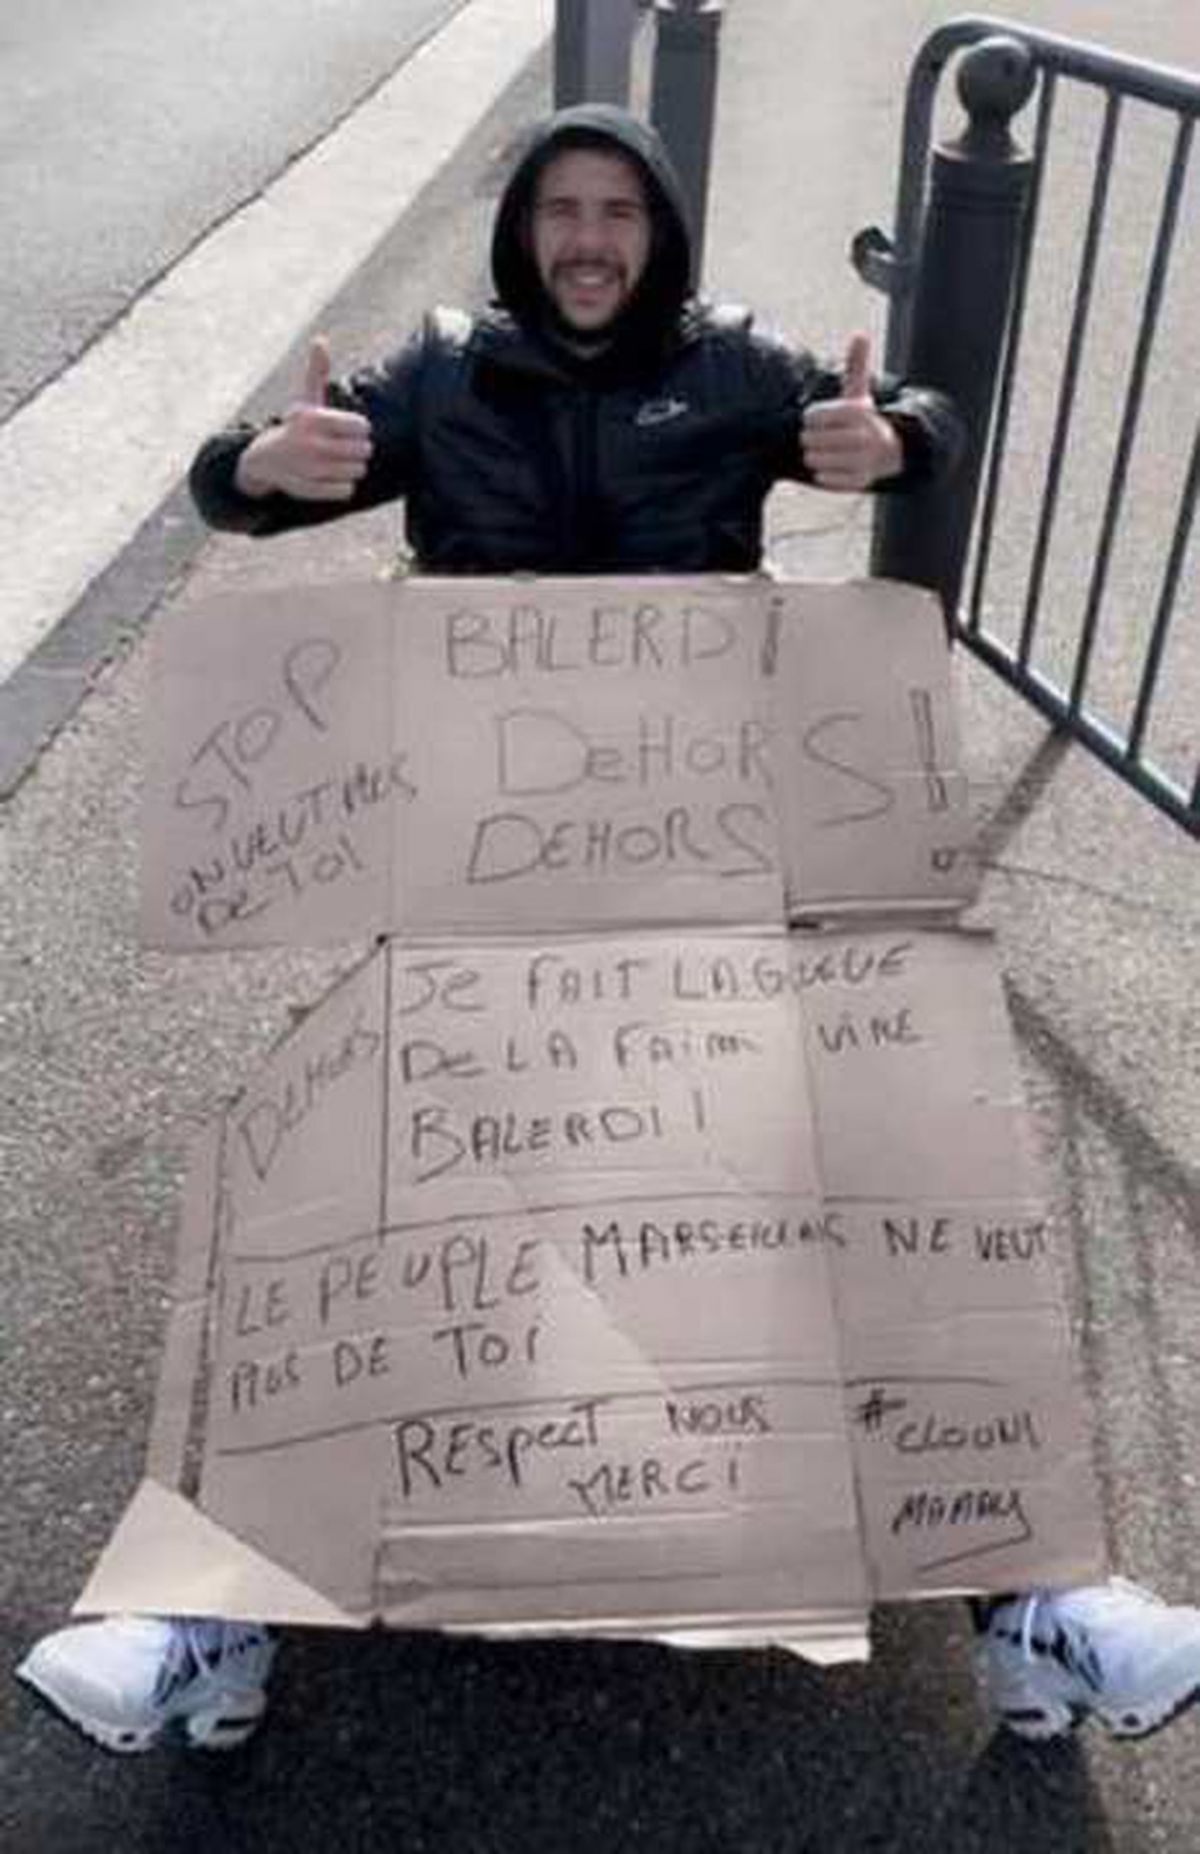 BALERDI
DEHORS!
DEHORS
STOP
ON VEUT PAS
DE TOI
DEHORS
JE FAIT LA GUEUE
DE LA FAIM VIRE
BALERDI!
LE PEUPLE MARSEILLAIS NE VEUT
PAS DE TOI
RESPECT NOUS
MERCI
#